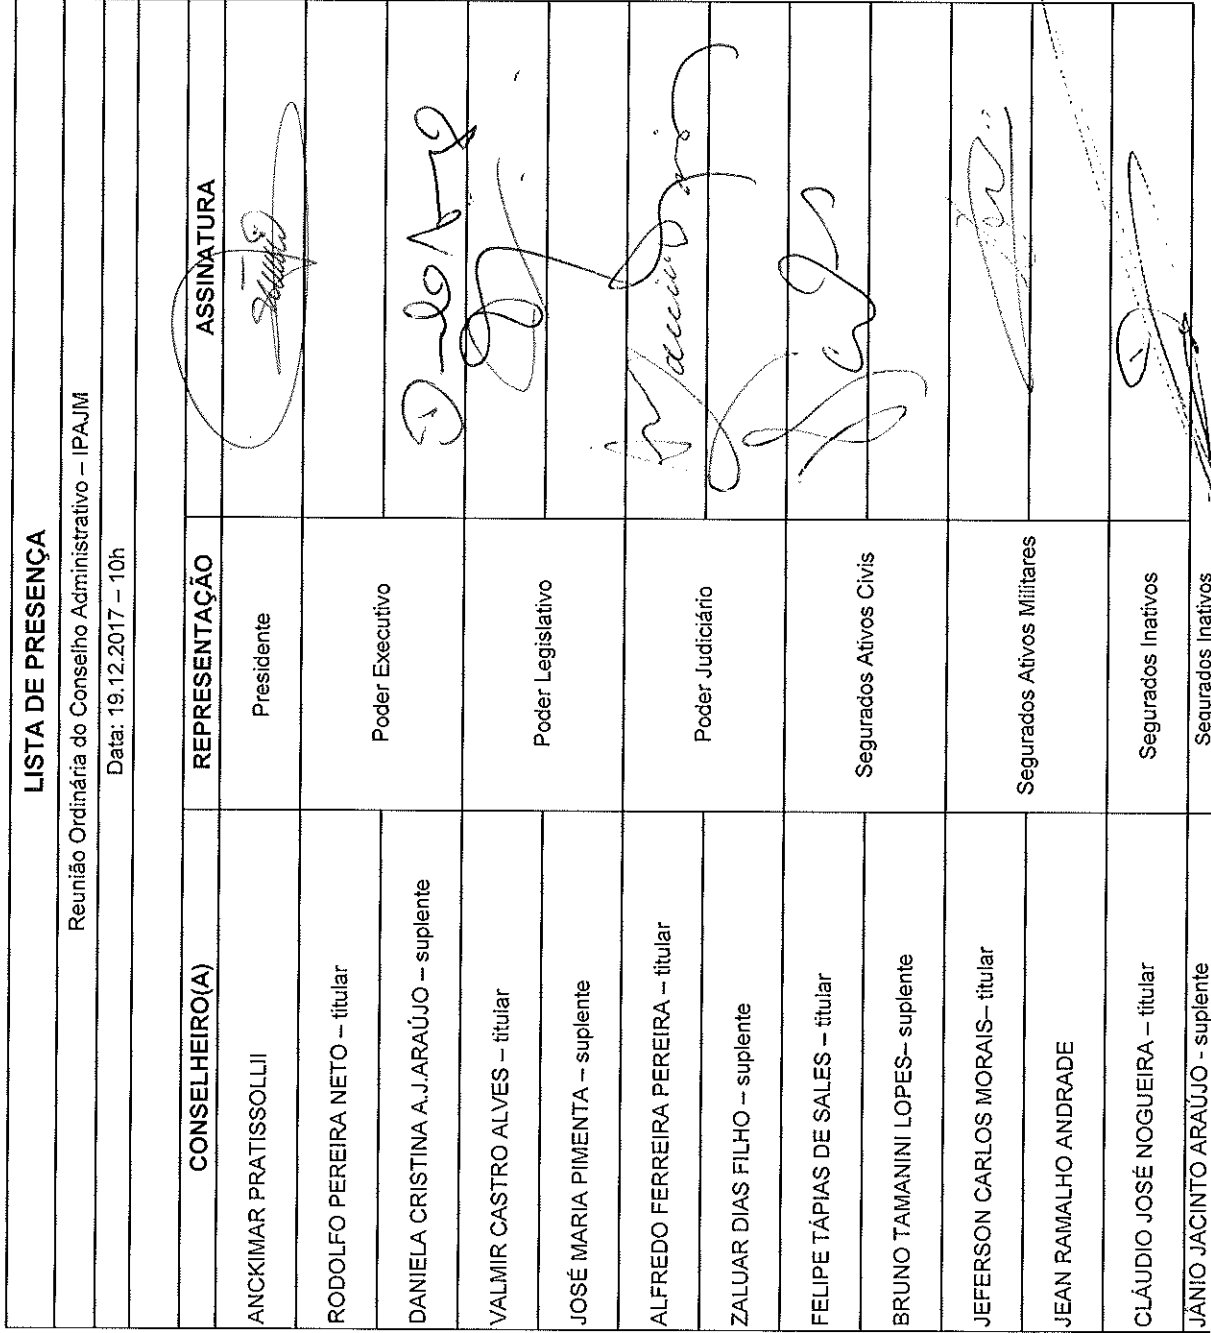 LISTA DE PRESENÇA
Reunião Ordinária do Conselho Administrativo – IPAJM
Data: 19.12.2017 – 10h
CONSELHEIRO(A) REPRESENTAÇÃO ASSINATURA
ANCKIMAR PRATISSOLLII Presidente
RODOLFO PEREIRA NETO – titular
Poder Executivo
DANIELA CRISTINA A.J.ARAÚJO – suplente
VALMIR CASTRO ALVES – titular
Poder Legislativo
JOSÉ MARIA PIMENTA – suplente
ALFREDO FERREIRA PEREIRA – titular
Poder Judiciário
ZALUAR DIAS FILHO – suplente
FELIPE TÁPIAS DE SALES – titular
Segurados Ativos Civis
BRUNO TAMANINI LOPES– suplente
JEFERSON CARLOS MORAIS– titular
Segurados Ativos Militares
JEAN RAMALHO ANDRADE
CLÁUDIO JOSÉ NOGUEIRA – titular Segurados Inativos
JÂNIO JACINTO ARAÚJO - suplente Segurados Inativos